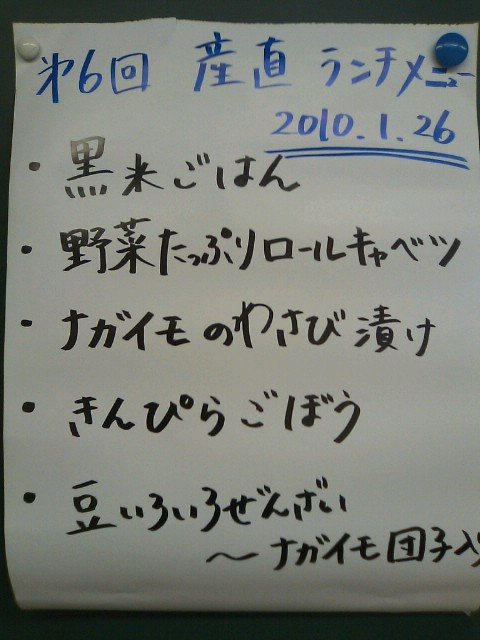 第6回 産直 ランチメニュー
2010.1.26
・黒米ごはん
・野菜たっぷりロールキャベツ
・ナガイモのわさび漬け
・きんぴらごぼう
・豆いろいろぜんざい
～ナガイモ団子入り